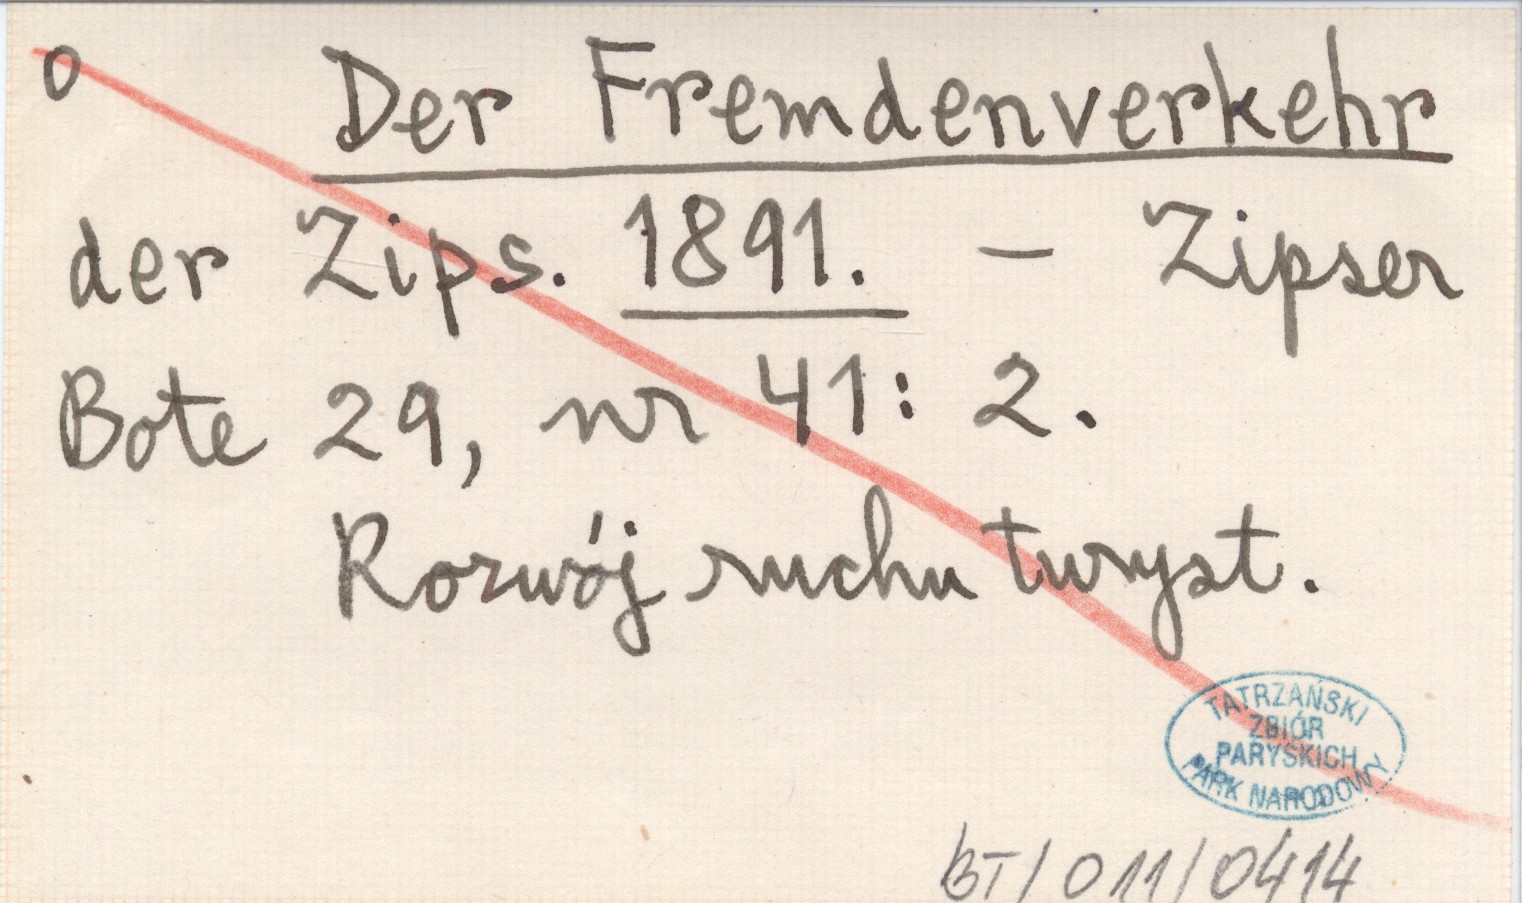 o Der Fremdenverkehr
der Zips. 1891. – Zipser
Bote 29, nr 41: 2.
Rozwój ruchu turyst.
TATRZAŃSKI
ZBIÓR
PARYSKICH
PARK NARODOWY
BT/011/0414